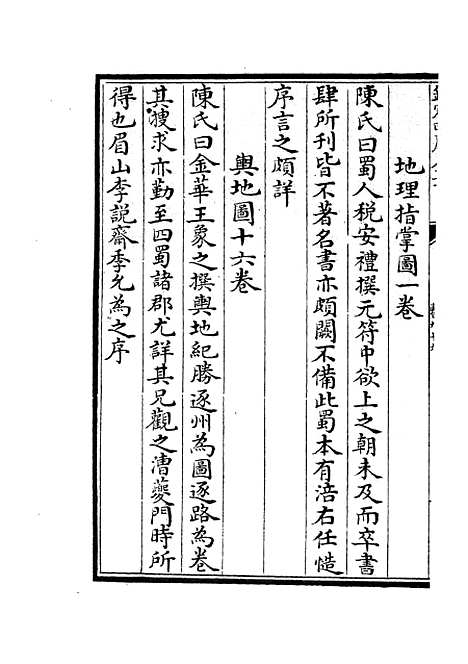 地理指掌圖一卷
陳氏曰蜀人税安禮撰元符中欲上之朝未及而卒書
肆所刊皆不著名書亦頗闕不備此蜀本有涪右任慥
序言之頗詳
輿地圖十六卷
陳氏曰金華王象之撰輿地紀勝逐州為圖逐路為卷
其搜求亦勤至四蜀諸郡尤詳其兄觀之漕夔門時所
得也眉山李説齋季允為之序